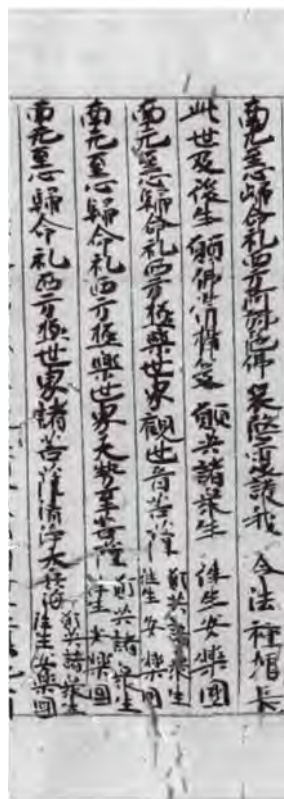 南无至心歸命礼西方阿弥陁佛 哀愍覆護我 令法種增長
此世及後生 願佛常攝受 願共諸衆生 往生安樂國
南无至心歸命礼西方極樂世界觀世音菩薩 願共諸衆生 往生安樂國
南无至心歸命礼西方極樂世界大勢至菩薩 願共諸衆生 往生安樂國
南无至心歸命礼西方極樂世界諸菩薩清淨大衆海 願共諸衆生 往生安樂國